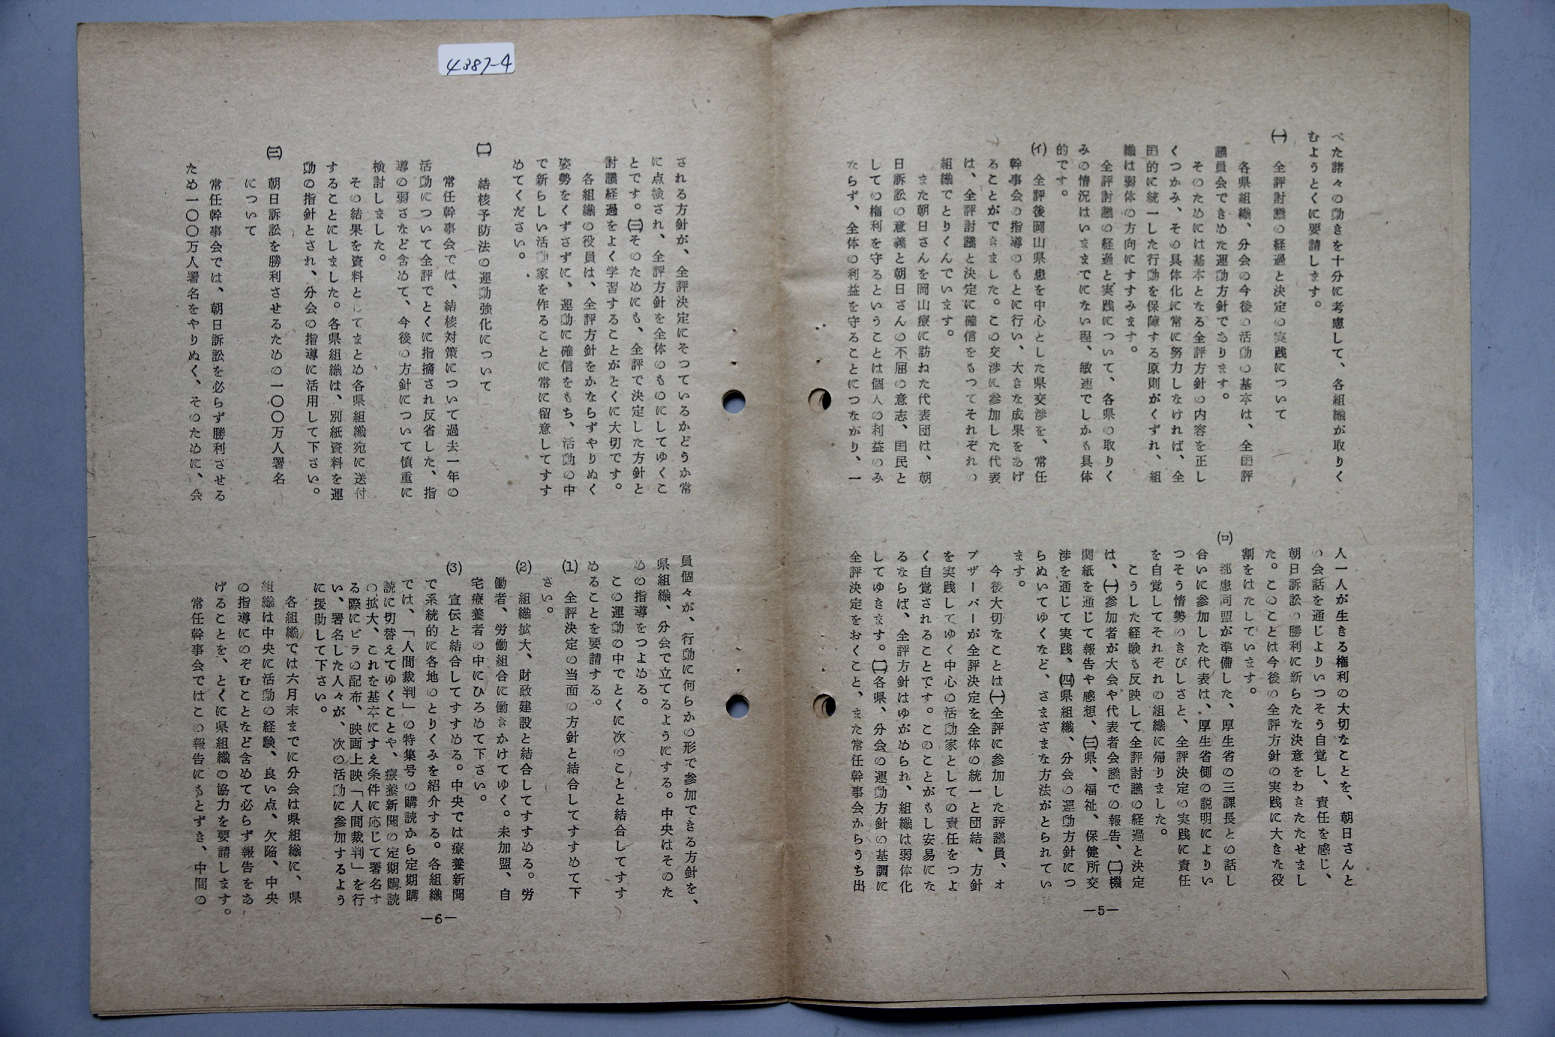 4387-4
べた諸々の動きを十分に考慮して、各組織が取りく
むようとくに要請します。
㈠ 全評討議の経過と決定の実践について
各県組織、分会の今後の活動の基本は、全国評
議員会できめた運動方針であります。
そのためには基本となる全評方針の内容を正し
くつかみ、その具体化に常に努力しなければ、全
国的に統一した行動を保障する原則がくずれ、組
織は弱体の方向にすすみます。
全評討議の経過と実践について、各県の取りく
みの情況はいままでにない程、敏速でしかも具体
的です。
(イ) 全評後岡山県患を中心とした県交渉を、常任
幹事会の指導のもとに行い、大きな成果をあげ
ることができました。この交渉に参加した代表
は、全評討議と決定に確信をもつてそれぞれの
組織でとりくんでいます。
また朝日さんを岡山療に訪ねた代表団は、朝
日訴訟の意義と朝日さんの不屈の意志、国民と
しての権利を守るということは個人の利益のみ
たらず、全体の利益を守ることにつながり、一
人一人が生きる権利の大切なことを、朝日さんと
の会話を通じよりいつそう自覚し、責任を感じ、
朝日訴訟の勝利に新らたな決意をわきたたせまし
た。このことは今後の全評方針の実践に大きた役
割をはたしています。
(ロ) 都患同盟が準備した、厚生省の三課長との話し
合いに参加した代表は、厚生省側の説明によりい
つそう情勢のきびしさと、全評決定の実践に責任
を自覚してそれぞれの組織に帰りました。
こうした経験も反映して全評討議の経過と決定
は、㈠参加者が大会や代表者会議での報告、㈡機
関紙を通じて報告や感想、㈢県、福祉、保健所交
渉を通じて実践、㈣県組織、分会の運動方針につ
らぬいてゆくなど、さまざまな方法がとられてい
ます。
今後大切なことは㈠全評に参加した評議員、オ
ブザーバーが全評決定を全体の統一と団結、方針
を実践してゆく中心の活動家としての責任をつよ
く自覚されることです。このことがもし安易にな
るならば、全評方針はゆがめられ、組織は弱体化
してゆきます。㈡各県、分会の運動方針の基調に
全評決定をおくこと、また常任幹事会からうち出
—5—
される方針が、全評決定にそつているかどうか常
に点検され、全評方針を全体のものにしてゆくこ
とです。㈢そのためにも、全評で決定した方針と
討議経過をよく学習することがとくに大切です。
各組織の役員は、全評方針をかならずやりぬく
姿勢をくずさずに、運動に確信をもち、活動の中
で新らしい活動家を作ることに常に留意してすす
めてください。
㈡ 結核予防法の運動強化について
常任幹事会では、結核対策について過去一年の
活動について全評でとくに指摘され反省した、指
導の弱さなど含めて、今後の方針について慎重に
検討しました。
その結果を資料としてまとめ各県組織宛に送付
することにしました。各県組織は、別紙資料を運
動の指針とされ、分会の指導に活用して下さい。
㈢ 朝日訴訟を勝利させるための一〇〇万人署名
について
常任幹事会では、朝日訴訟を必らず勝利させる
ため一〇〇万人署名をやりぬく、そのために、会
員個々が、行動に何らかの形で参加できる方針を、
県組織、分会で立てるようにする。中央はそのた
めの指導をつよめる。
この運動の中でとくに次のことと結合してすす
めることを要請する。
(1) 全評決定の当面の方針と結合してすすめて下
さい。
(2) 組織拡大、財政建設と結合してすすめる。労
働者、労働組合に働きかけてゆく。未加盟、自
宅療養者の中にひろめて下さい。
(3) 宣伝と結合してすすめる。中央では療養新聞
で系統的に各地のとりくみを紹介する。各組織
では、「人間裁判」の特集号の購読から定期購
読に切替えてゆくことや、療養新聞の定期購読
の拡大、これを基本にすえ条件に応じて署名す
る際にビラの配布、映画上映「人間裁判」を行
い、署名した人々が、次の活動に参加するよう
に援助して下さい。
各組織では六月末までに分会は県組織に、県
組織は中央に活動の経験、良い点、欠陥、中央
の指導にのぞむことなど含めて必らず報告をあ
げることを、とくに県組織の協力を要請します。
常任幹事会ではこの報告にもとずき、中間の
—6—